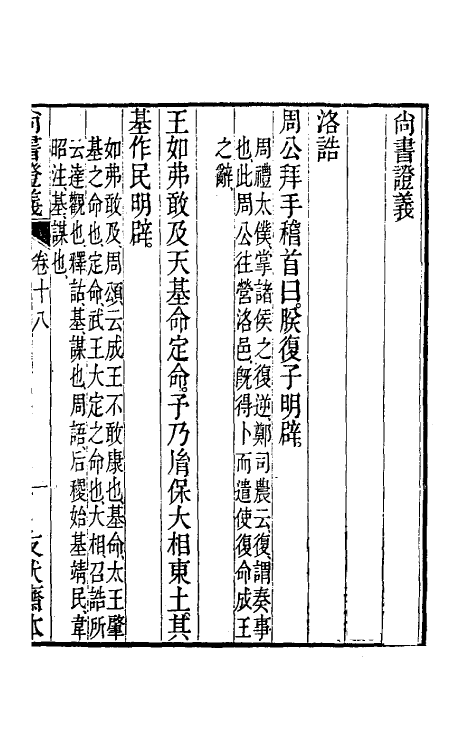 尚書證義
洛誥
周公拜手稽首曰朕復子明辟
周禮太僕掌諸侯之復逆鄭司農云復謂奏事
也此周公往營洛邑旣得卜而遣使復命成王
之辭
王如弗敢及天基命定命予乃胤保大相東土其
基作民明辟
如弗敢及周頌云成王不敢康也基命太王肇
基之命也定命武王大定之命也大相召誥所
云達觀也釋詁基謀也周語后稷始基靖民韋
昭注基謀也
尚書證義 卷十八 一